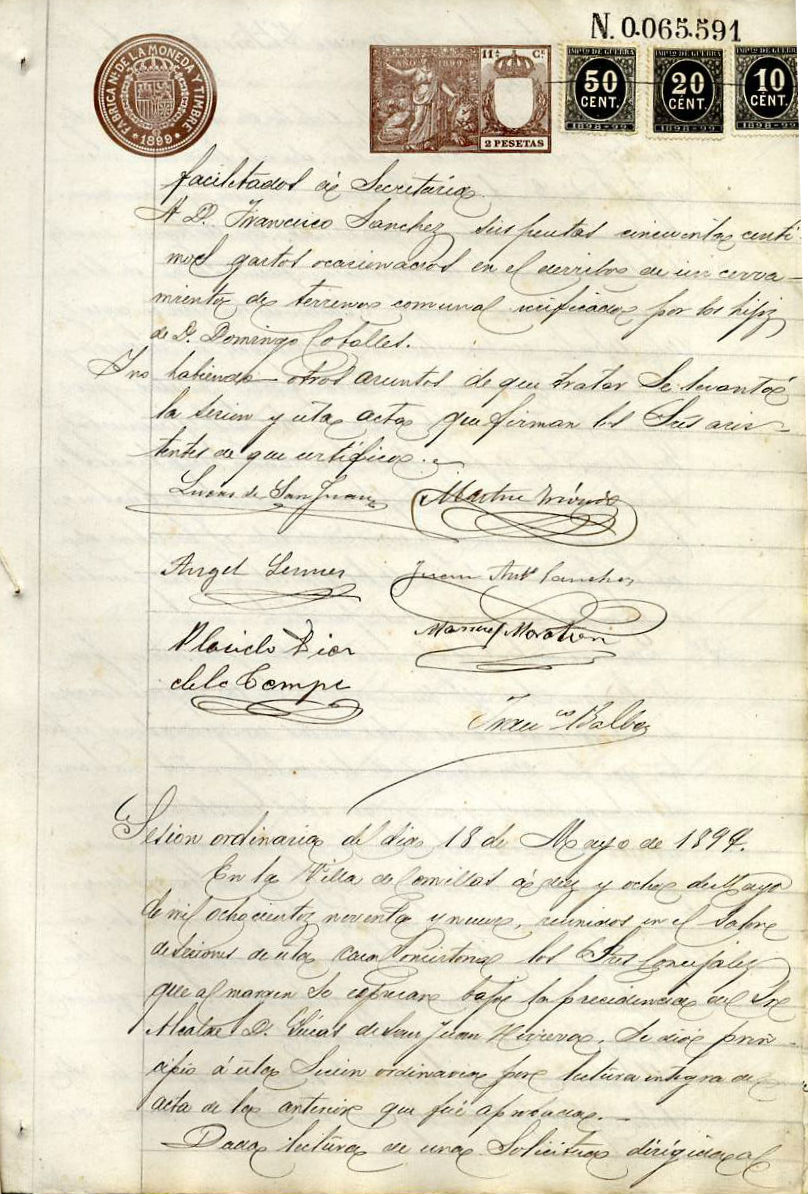 N. 0.065.591
FABRICA NL. DE LA MONEDA Y TIMBRE
* 1899 *
AÑO 1899
11ª Cª
2 PESETAS
IMPTO DE GUERRA
50
CENT.
1898-99
IMPTO DE GUERRA
20
CÉNT.
1898-99
IMPTO DE GUERRA
10
CÉNT.
1898-99
facilitados á Secretária
A D. Francisco Sanchez seis pesetas cincuenta centi-
mos gastos ocasionados en el derribo de un cerra-
miento de terreno comunal verificado por los hijos
de D. Domingo Coballes.
Y no habiendo otros asuntos de que tratar se levantó
la sesion y esta acta que firman los Sres asis-
tentes de que certifico.
Lucas de San Juan
Angel
Juan Antº Sanchez
Placido Diaz
de la Campa
Manuel
Francº Balbas
Sesion ordinaria del dia 18 de Mayo de 1899.
En la Villa de Comillas á diez y ocho de Mayo
de mil ochocientos noventa y nueve, reunidos en el Salon
de sesiones de esta Casa Consistorial los Sres Concejales
que al margen se espresan bajo la presidencia del Sr
Alcalde D. Lucas de San Juan Herrera, se dió prin-
cipio á esta Sesion ordinaria por lectura integra del
acta de la anterior que fué aprobada.
Dada lectura de una Solicitud dirigida al